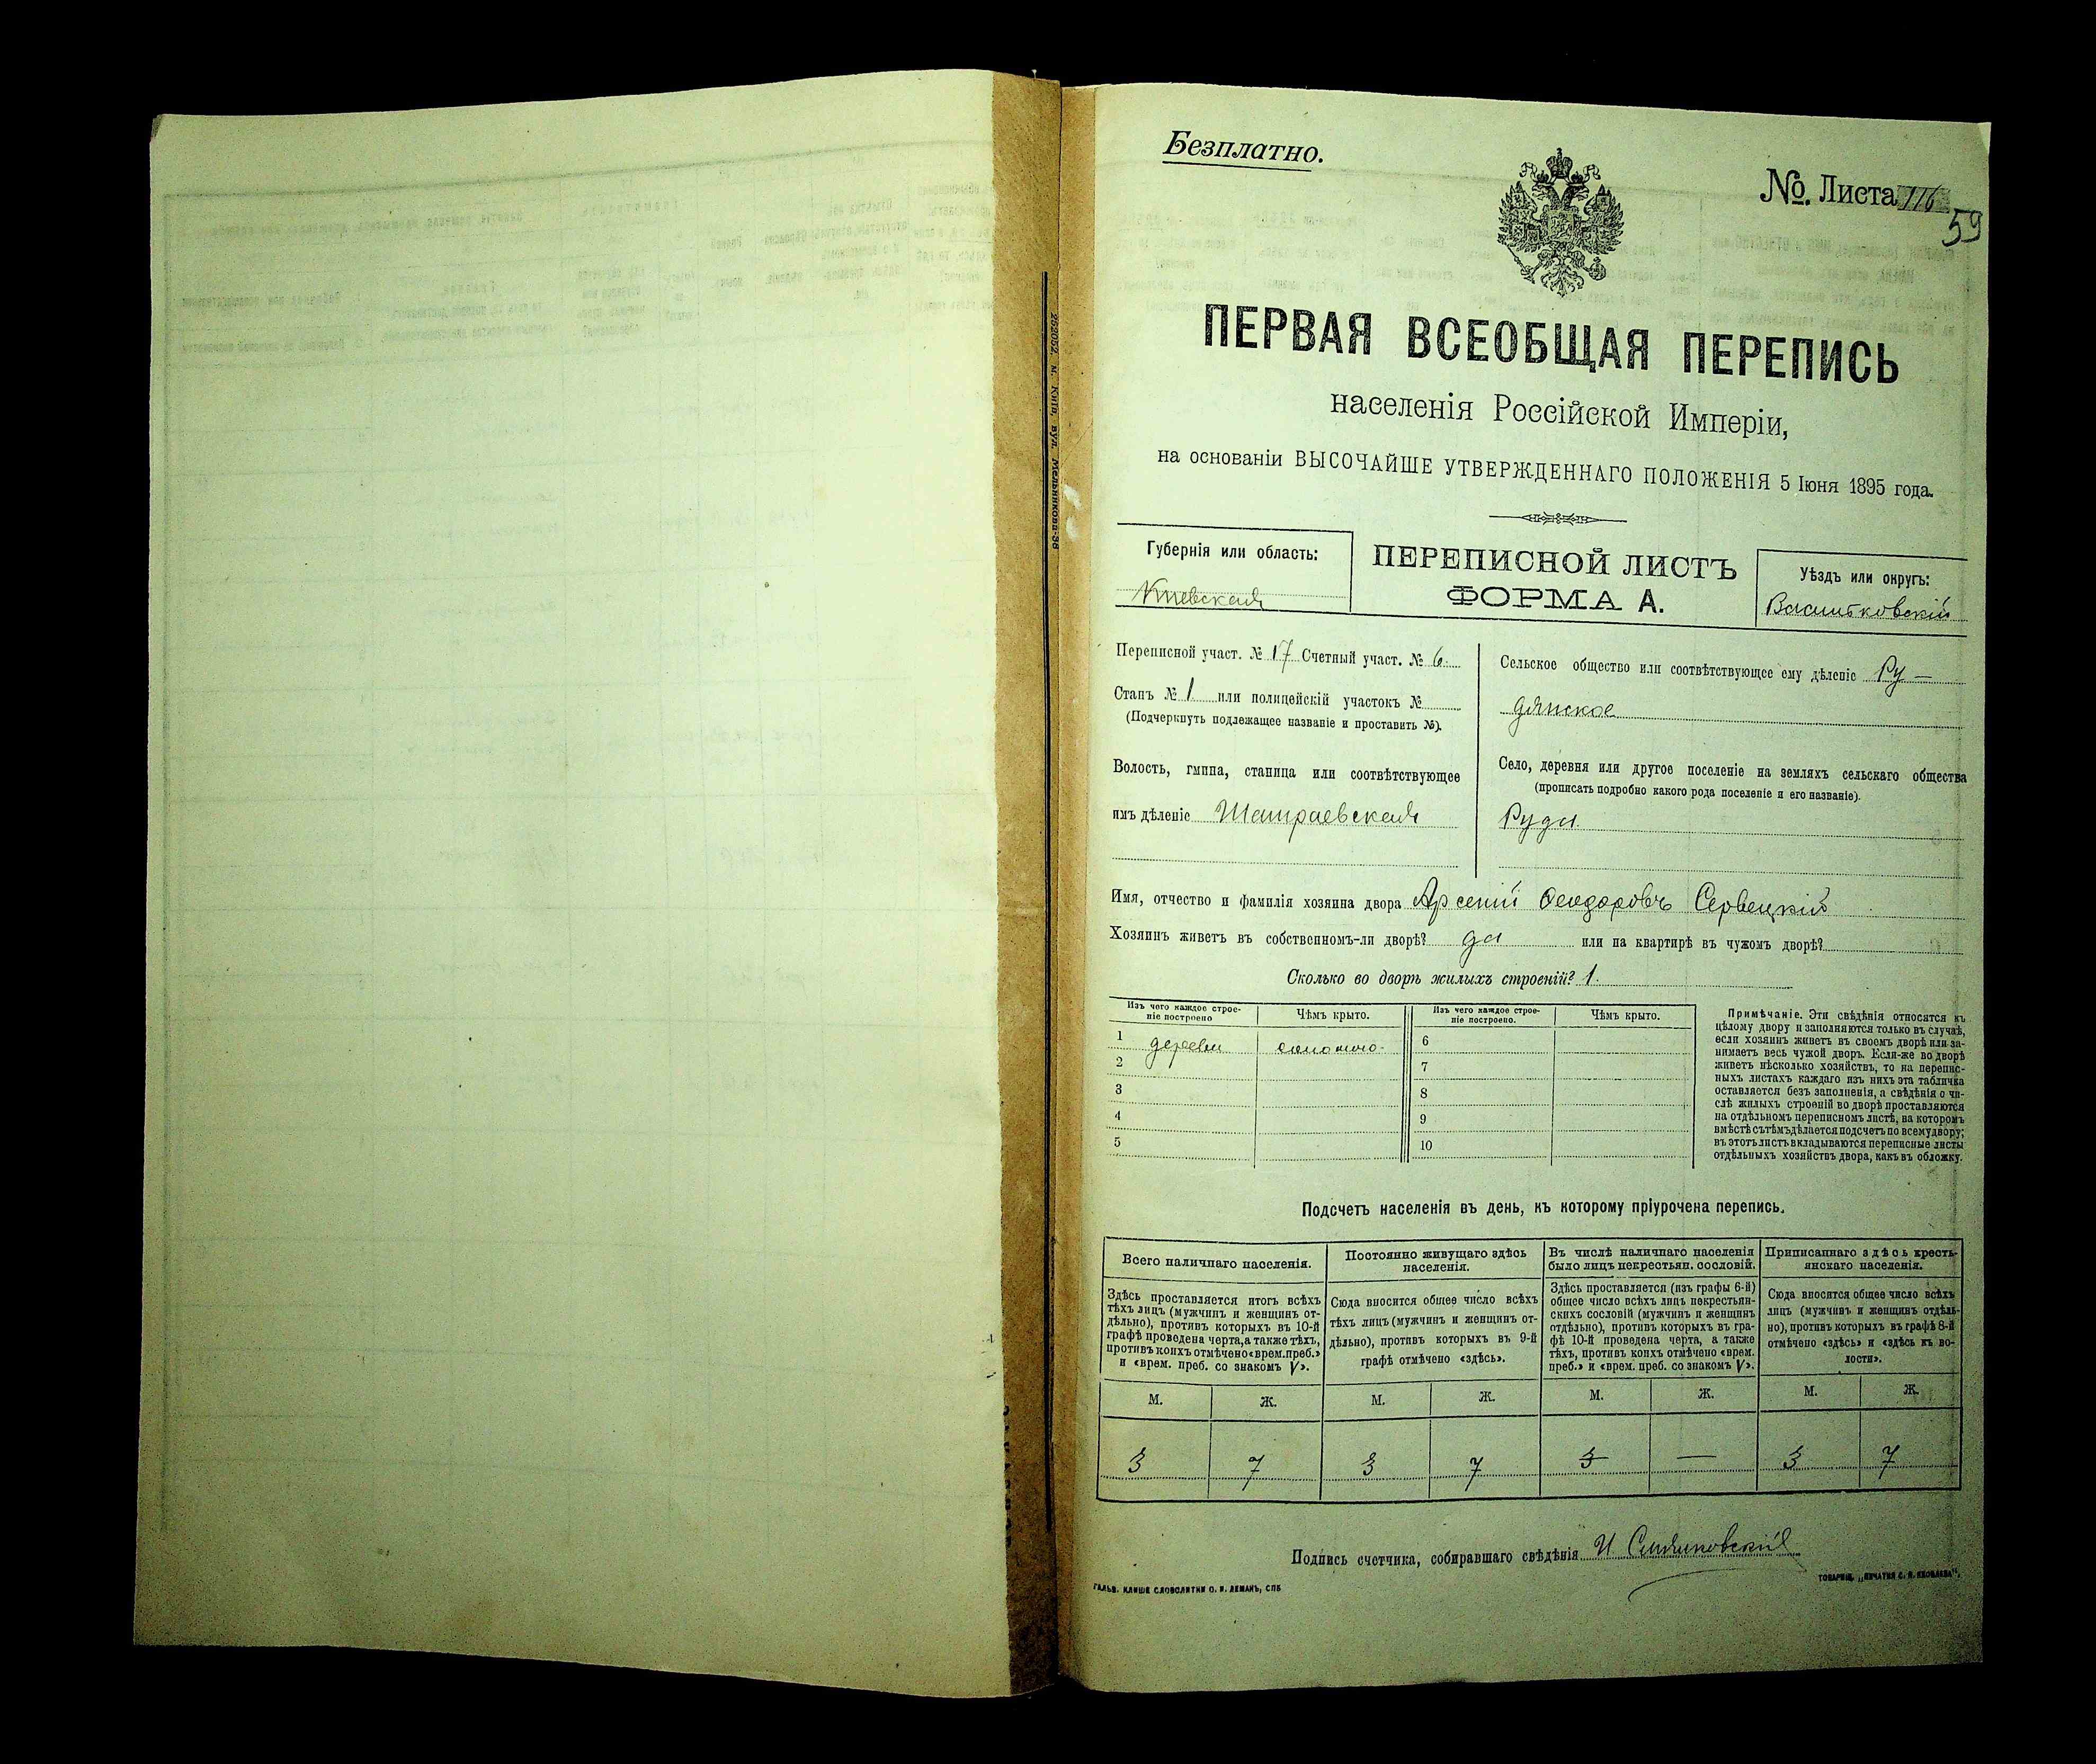 Безплатно.
№. Листа 116
59
ПЕРВАЯ ВСЕОБЩАЯ ПЕРЕПИСЬ
населенія Россійской Имперіи,
на основаніи ВЫСОЧАЙШЕ УТВЕРЖДЕННАГО ПОЛОЖЕНІЯ 5 Іюня 1895 года.
Губернія или область:
Киевская
ПЕРЕПИСНОЙ ЛИСТЪ
ФОРМА А.
Уѣздъ или округъ:
Васильковскій
Переписной участ. № 17 Счетный участ. № 6
Станъ № 1 или полицейскій участокъ №
(Подчеркнуть подлежащее названіе и проставить №).
Волость, гмина, станица или соотвѣтствующее
имъ дѣленіе Шамраевская
Сельское общество или соотвѣтствующее ему дѣленіе Ру-
дянское
Село, деревня или другое поселеніе на земляхъ сельскаго общества
(прописать подробно какого рода поселеніе и его названіе).
Руда
Имя, отчество и фамилія хозяина двора Арсеній Феодоровъ Сервецкій
Хозяинъ живетъ въ собственномъ-ли дворѣ? да или на квартирѣ въ чужомъ дворѣ?
Сколько во дворѣ жилыхъ строеній? 1.
Изъ чего каждое строе-
ніе построено
Чѣмъ крыто.
Изъ чего каждое строе-
ніе построено.
Чѣмъ крыто.
1 дерева соломою
2
3
4
5
6
7
8
9
10
Примѣчаніе. Эти свѣдѣнія относятся къ
цѣлому двору и заполняются только въ случаѣ,
если хозяинъ живетъ въ своемъ дворѣ или за-
нимаетъ весь чужой дворъ. Если-же во дворѣ
живетъ нѣсколько хозяйствъ, то на перепис-
ныхъ листахъ каждаго изъ нихъ эта табличка
оставляется безъ заполненія, а свѣдѣнія о чи-
слѣ жилыхъ строеній во дворѣ проставляются
на отдѣльномъ переписномъ листѣ, на которомъ
вмѣстѣ съ тѣмъ дѣлается подсчетъ по всему двору;
въ этотъ листъ вкладываются переписные листы
отдѣльныхъ хозяйствъ двора, какъ въ обложку.
Подсчетъ населенія въ день, къ которому пріурочена перепись.
Всего наличнаго населенія.
Постоянно живущаго здѣсь
населенія.
Въ числѣ наличнаго населенія
было лицъ некрестьян. сословій.
Приписаннаго здѣсь кресть-
янскаго населенія.
Здѣсь проставляется итогъ всѣхъ
тѣхъ лицъ (мужчинъ и женщинъ от-
дѣльно), противъ которыхъ въ 10-й
графѣ проведена черта, а также тѣхъ,
противъ коихъ отмѣчено «врем. преб.»
и «врем. преб. со знакомъ V».
Сюда вносится общее число всѣхъ
тѣхъ лицъ (мужчинъ и женщинъ от-
дѣльно), противъ которыхъ въ 9-й
графѣ отмѣчено «здѣсь».
Здѣсь проставляется (изъ графы 6-й)
общее число всѣхъ лицъ некрестьян-
скихъ сословій (мужчинъ и женщинъ
отдѣльно), противъ которыхъ въ гра-
фѣ 10-й проведена черта, а также
тѣхъ, противъ коихъ отмѣчено «врем.
преб.» и «врем. преб. со знакомъ V».
Сюда вносится общее число всѣхъ
лицъ (мужчинъ и женщинъ отдѣль-
но), противъ которыхъ въ графѣ 8-й
отмѣчено «здѣсь» и «здѣсь къ во-
лости».
М. Ж. М. Ж. М. Ж. М. Ж.
3 7 3 7 3 — 3 7
Подпись счетчика, собиравшаго свѣдѣнія И
ГАЛЬВ. КЛИШЕ СЛОВОЛИТНИ О. И. ЛЕМАНЪ, СПБ
ТОВАРИЩ. „ПЕЧАТНЯ С. П. ЯКОВЛЕВА".
252052, м. Київ, вул. Мельникова-38